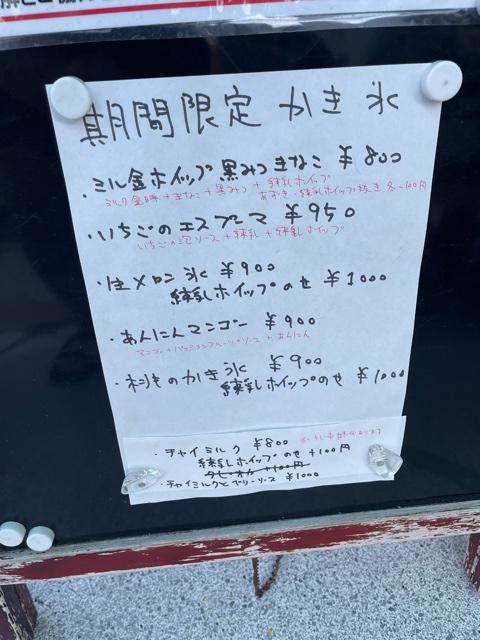 期間限定 かき氷
・ミル金ホイップ黒みつきなこ ¥800
ミルク金時+きなこ+黒みつ+練乳ホイップ
あずき・練乳ホイップ抜き 各-100円
・いちごのエスプーマ ¥950
いちごの泡ソース+練乳+練乳ホイップ
・生メロン氷 ¥900
練乳ホイップのせ ¥1000
・あんにんマンゴー ¥900
マンゴー+パッションフルーツソース+あんにん
・ももかき氷 ¥900
練乳ホイップのせ ¥1000
・チャイミルク ¥800
練乳ホイップのせ +100円
・チャイミルクとベリーソース ¥1000